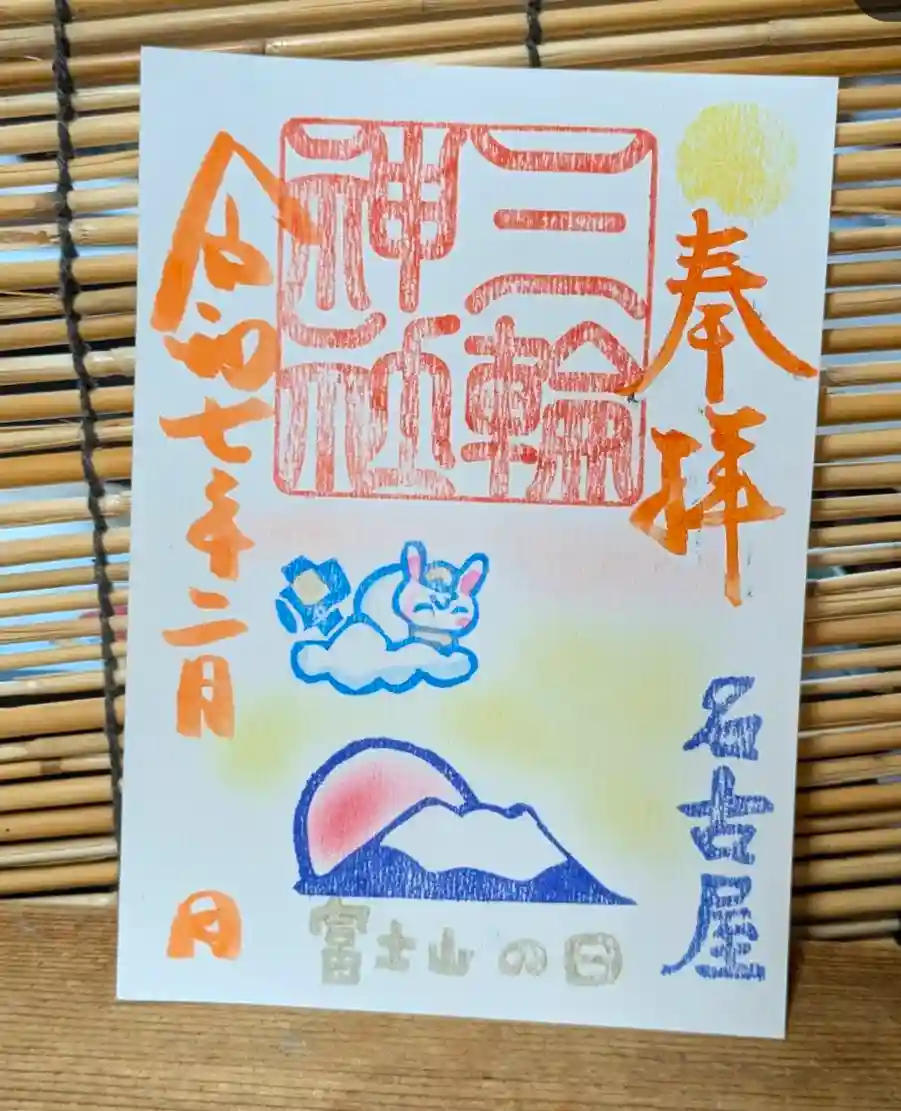 奉拝
名古屋
三輪
神社
富士山の日
令和七年二月
日